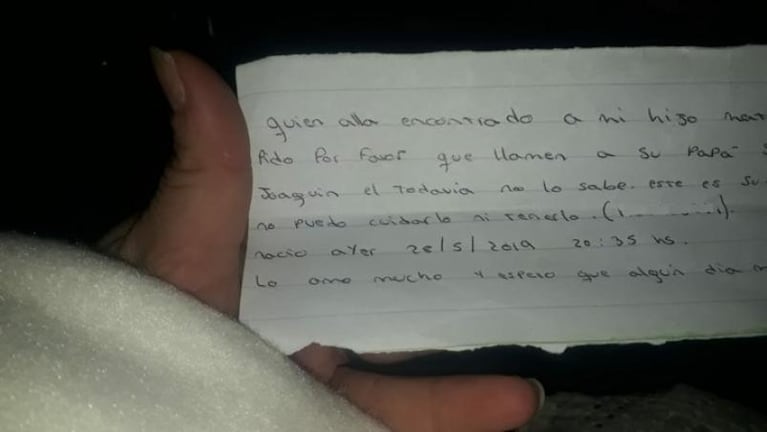 quien alla encontrado a mi hijo
Pido Por Favor que llamen a su PaPá
Joaquin el Todavia no lo sabe. este es su
no puedo cuidarlo ni tenerlo. (
nacio aYer 28/5/2019 20:35 hs.
Lo amo mucho y espero que algún dia